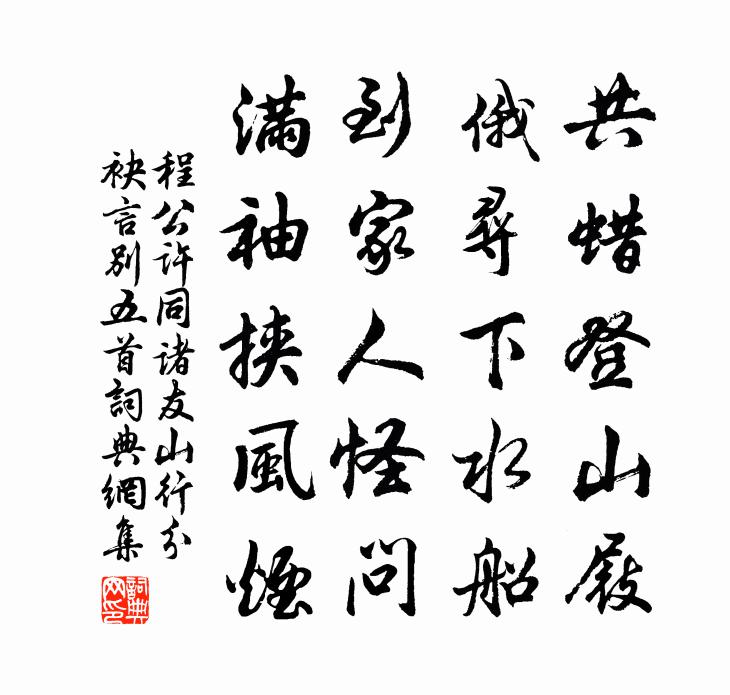 共蜡登山屐
俄尋下水船
到家人怪問
滿袖挾風煙
程公許同諸友山行分
袂言別五首詞典網集
詞典網印